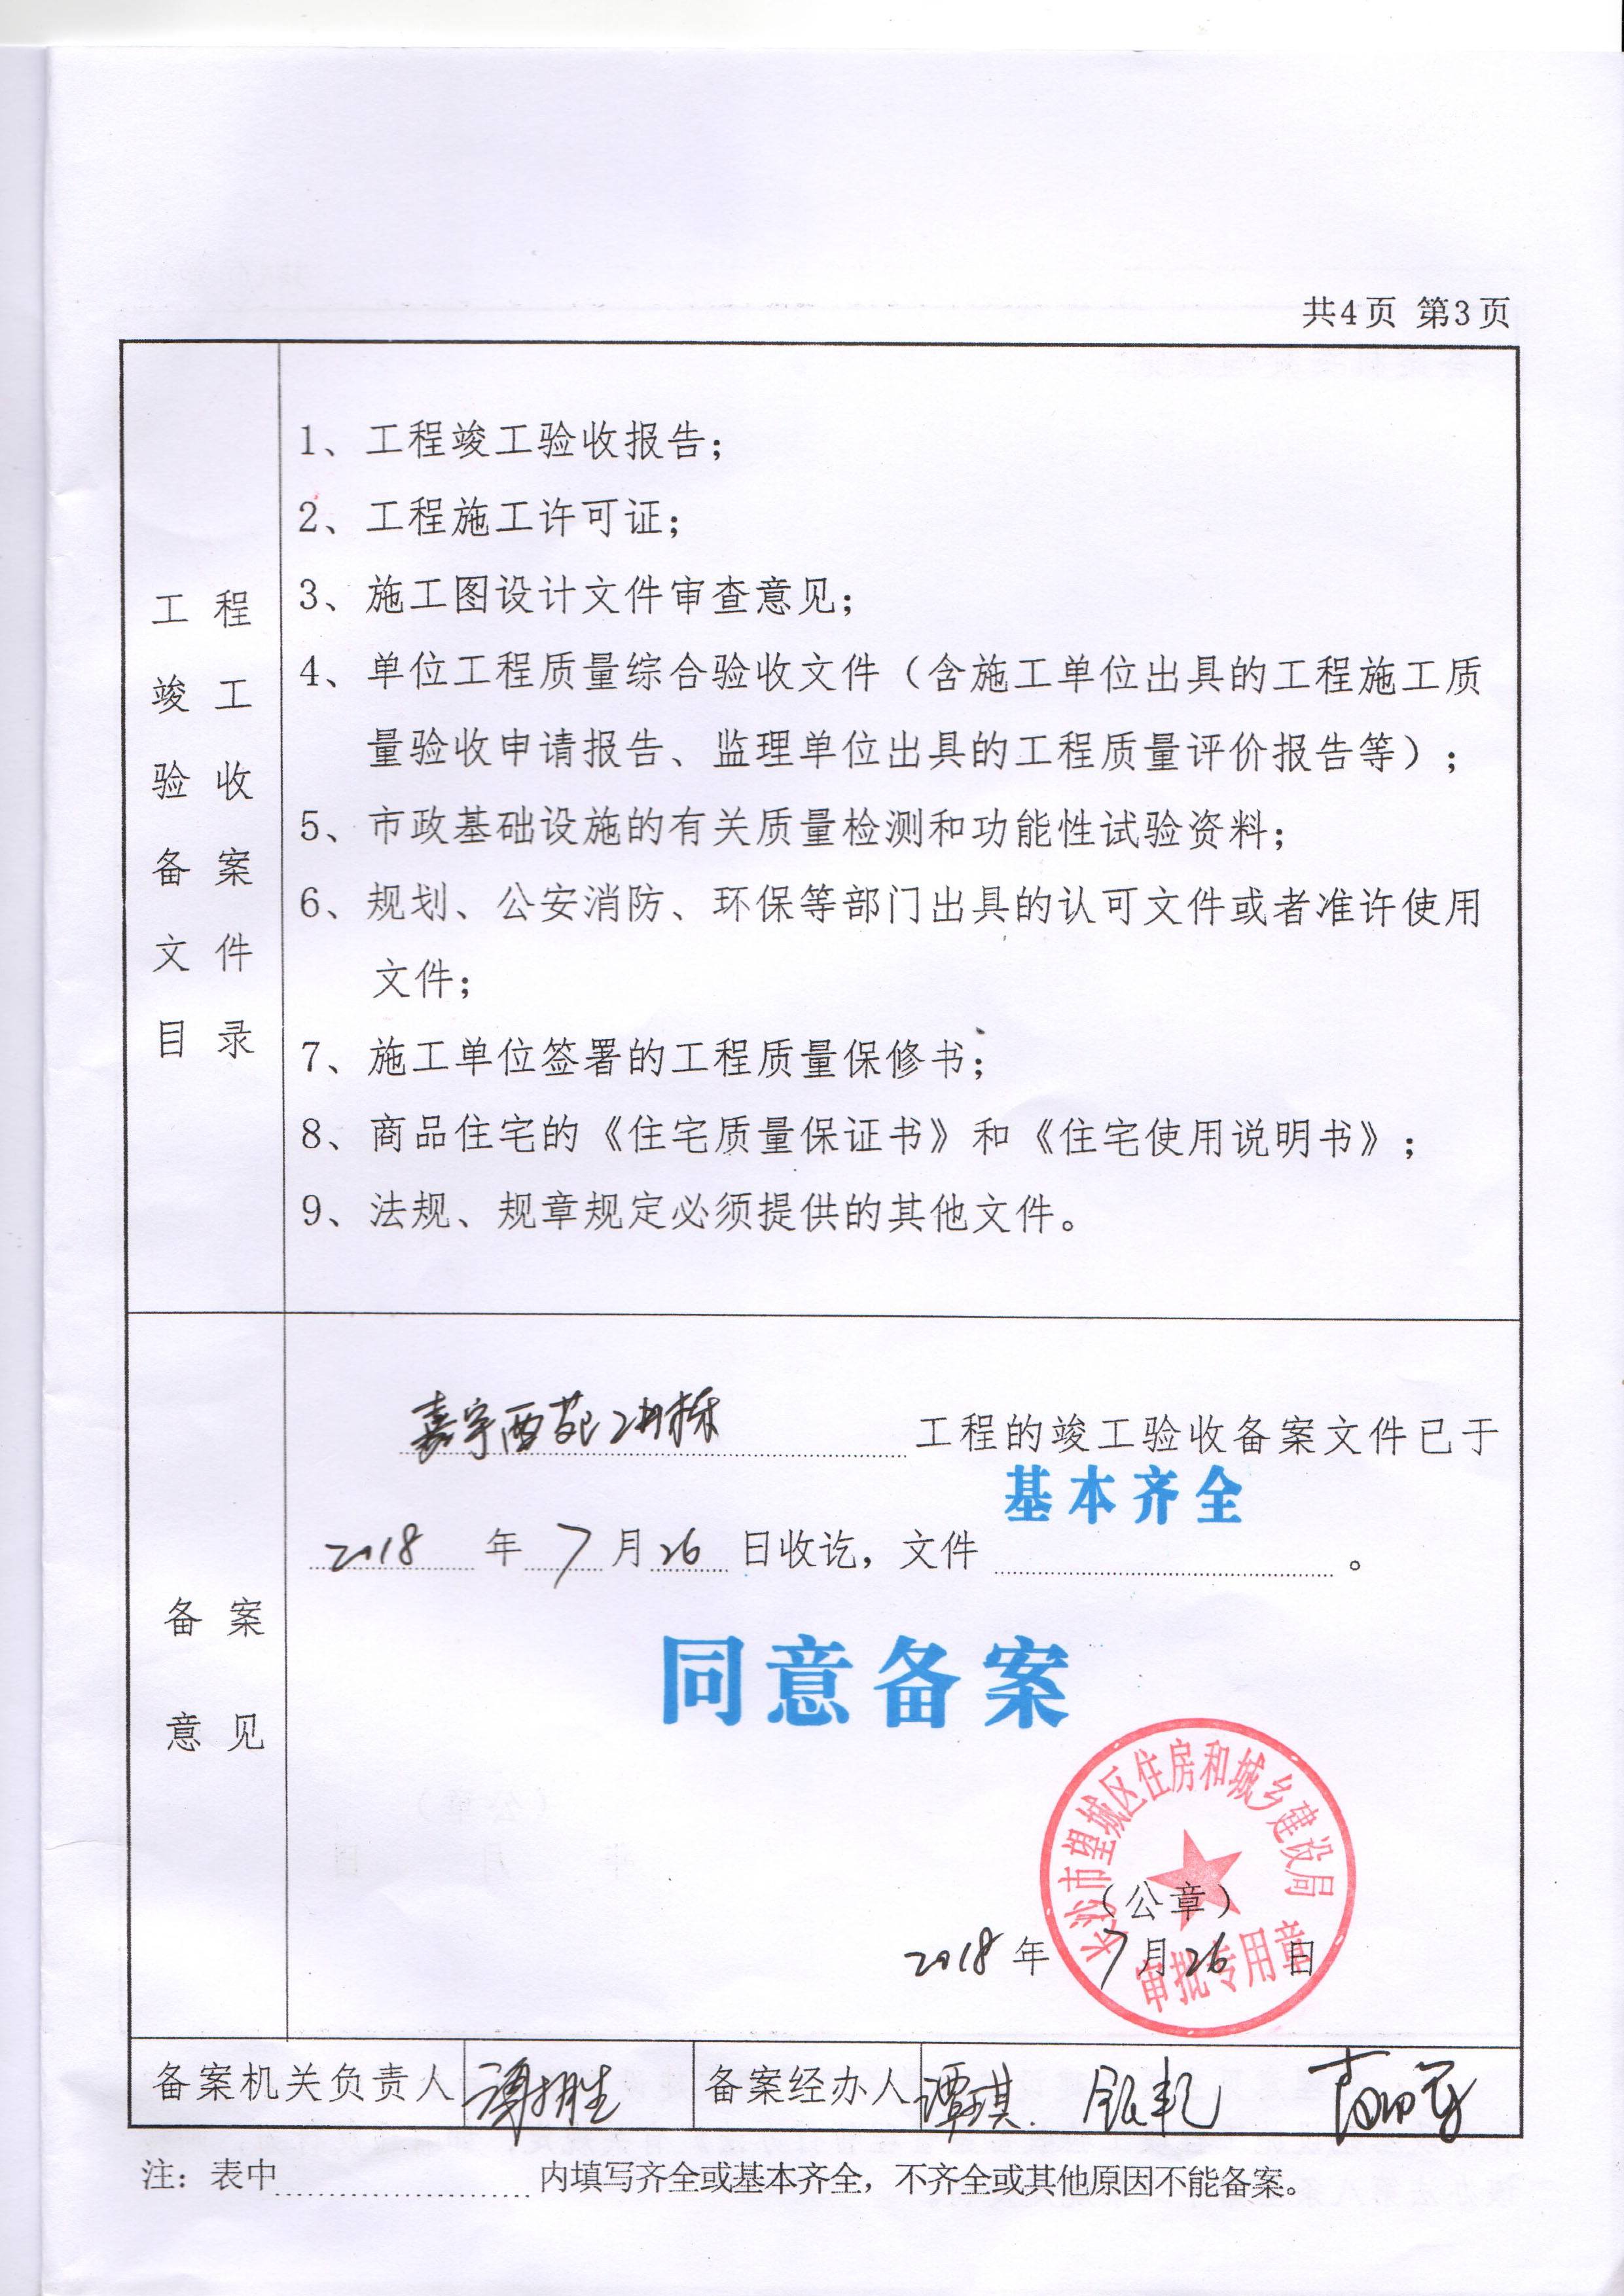 共4页 第3页
工程
竣工
验收
备案
文件
目录
1、工程竣工验收报告；
2、工程施工许可证；
3、施工图设计文件审查意见；
4、单位工程质量综合验收文件（含施工单位出具的工程施工质
量验收申请报告、监理单位出具的工程质量评价报告等）；
5、市政基础设施的有关质量检测和功能性试验资料；
6、规划、公安消防、环保等部门出具的认可文件或者准许使用
文件；
7、施工单位签署的工程质量保修书；
8、商品住宅的《住宅质量保证书》和《住宅使用说明书》；
9、法规、规章规定必须提供的其他文件。
备案
意见
嘉宇西苑2#栋 工程的竣工验收备案文件已于
基本齐全
2018 年 7 月 26 日收讫，文件 。
同意备案
长沙市望城区住房和城乡建设局
（公章）
2018 年 7 月 26 日
审批专用章
备案机关负责人 备案经办人 谭琪
注：表中 内填写齐全或基本齐全，不齐全或其他原因不能备案。